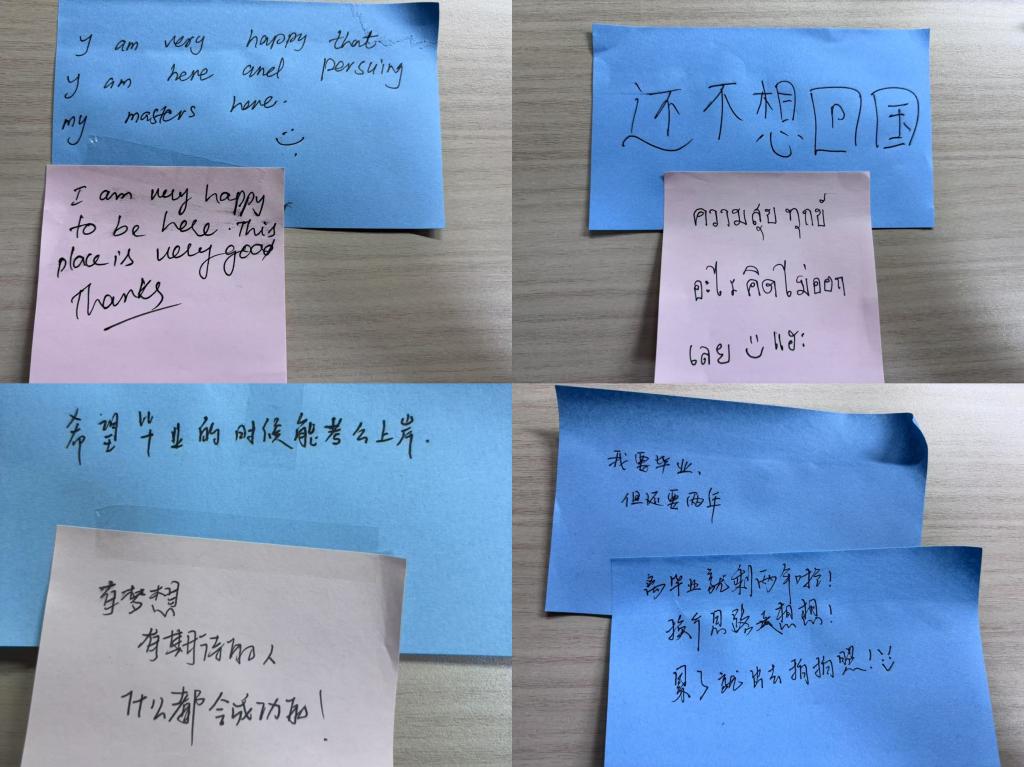 I am very happy that
I am here and persuing
my masters here.
I am very happy
to be here. This
place is very good
Thanks
还不想回国
ความสุข ทุกข์
อะไร คิดไม่ออก
เลย แฮะ
希望毕业的时候能考公上岸.
有梦想
有期待的人
什么都会成功的!
我要毕业,
但还要两年
离毕业就剩两年啦!
换个思路去想想!
累了就出去拍拍照!